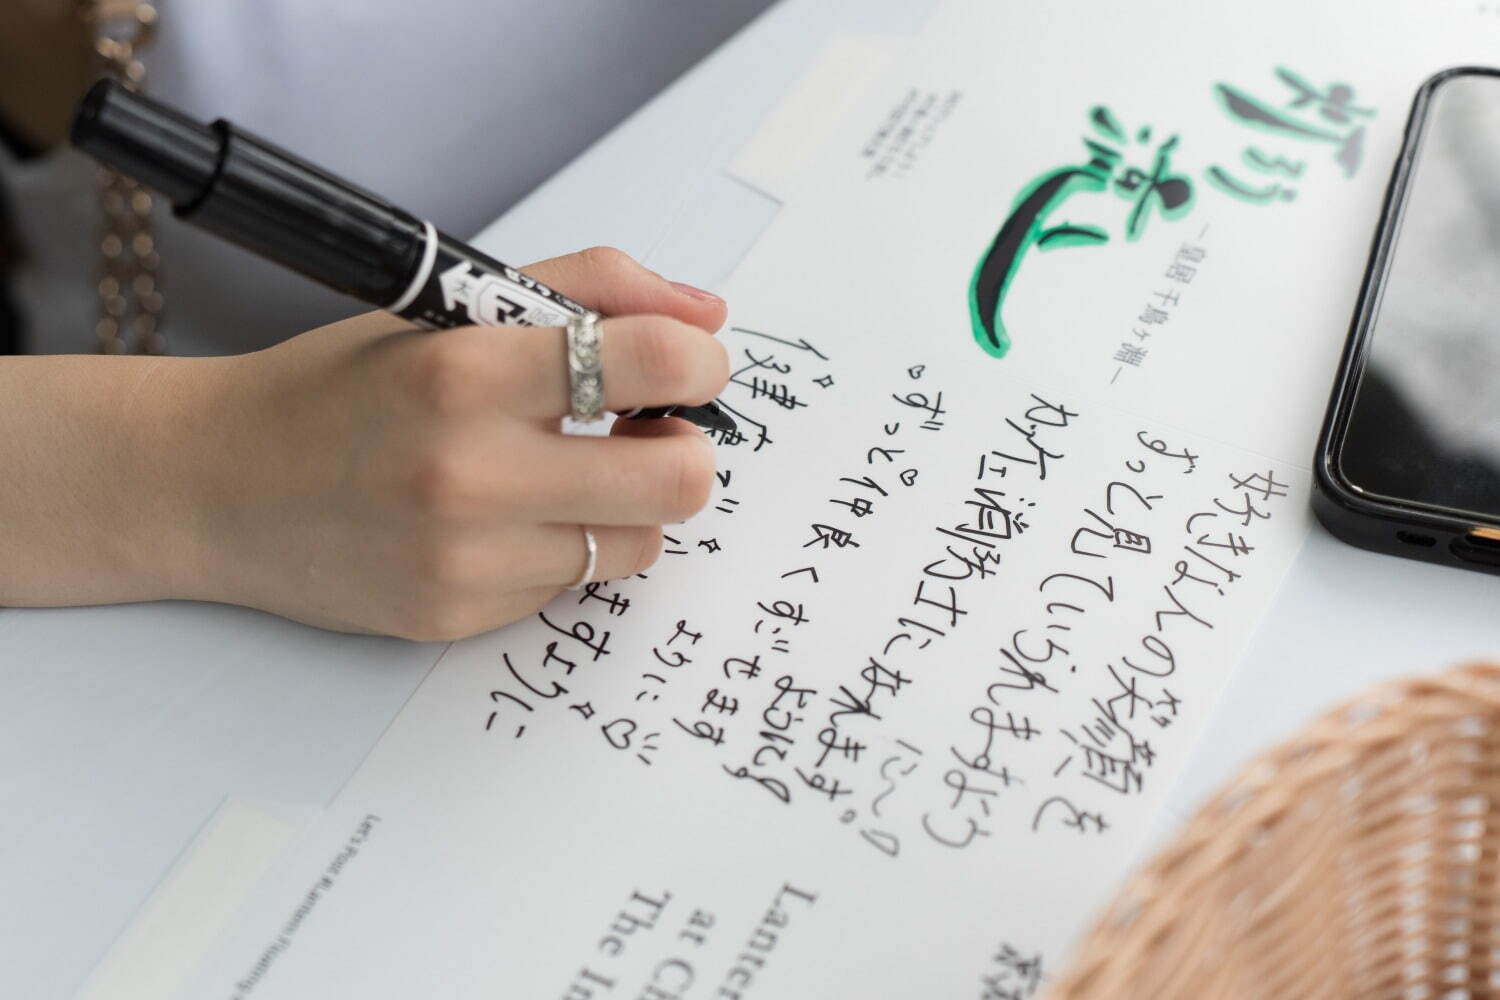 灯ろう流し
―皇居千鳥ヶ淵―
好きな人の笑顔を
ずっと見ていられますように〜
カッケェ消防士になれます。
♡ずっと♡仲良くすごせますように
健康で
ように♡
ますように
Let's Post #Lantern Floating
Lanter
at Ch
The Im